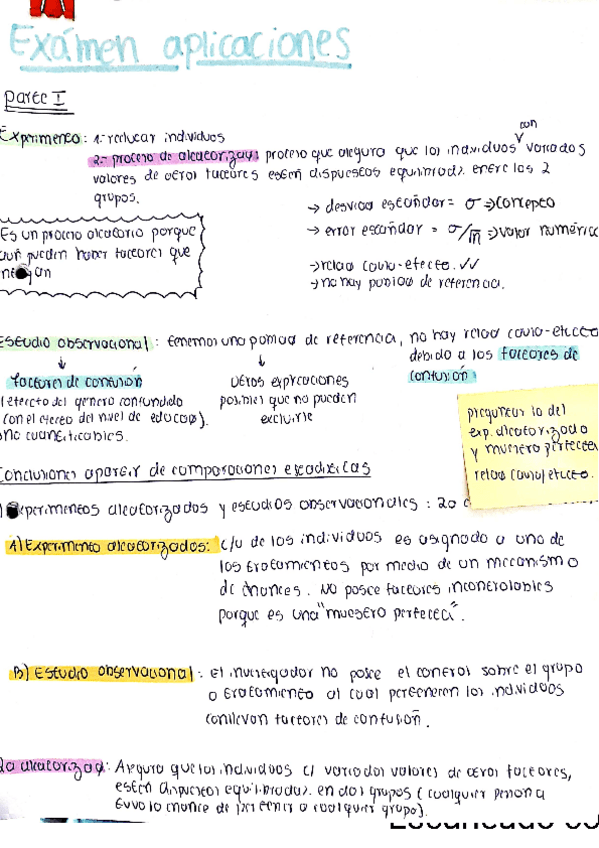 Exámen aplicaciones
parte I
Experimento: 1.- reclutar individuos
con
2.- proceso de aleatorizaç: proceso que asegura que los individuos variados
valores de otros factores estén dispuestos equilibrad. entre los 2
grupos.
Es un proceso aleatorio porque
aún pueden haber factores que
→ desviaç estándar = σ ⇒ concepto
→ error estándar = σ/√n ⇒ valor numérico
→ relaç causa-efecto. ✓✓
→ no hay poblaç de referencia.
Estudio observacional: tenemos una poblaç de referencia, no hay relaç causa-efecto
debido a los factores de
confusión
↓ ↓
factores de confusión
el efecto del genero confundido
(con el efecto del nivel de educaç).
no cuantificables.
otras explicaciones
posibles que no pueden
excluirse
preguntar lo del
exp. aleatorizado
y muestra perfecta
relaç causa/efecto.
Conclusiones a partir de comparaciones estadísticas
Experimentos aleatorizados y estudios observacionales:
A) Experimento aleatorizados: c/u de los individuos es asignado a uno de
los tratamientos por medio de un mecanismo
de chances. No posee factores incontrolables
porque es una "muestra perfecta".
B) Estudio observacional: el investigador no posee el control sobre el grupo
o tratamiento al cual pertenecen los individuos
conllevan factores de confusión.
La aleatorizaç: Asegura que los individuos c/ variados valores de otros factores,
estén dispuestos equilibrad. en dos grupos (cualquier persona
tuvo la chance de pertenecer a cualquier grupo).